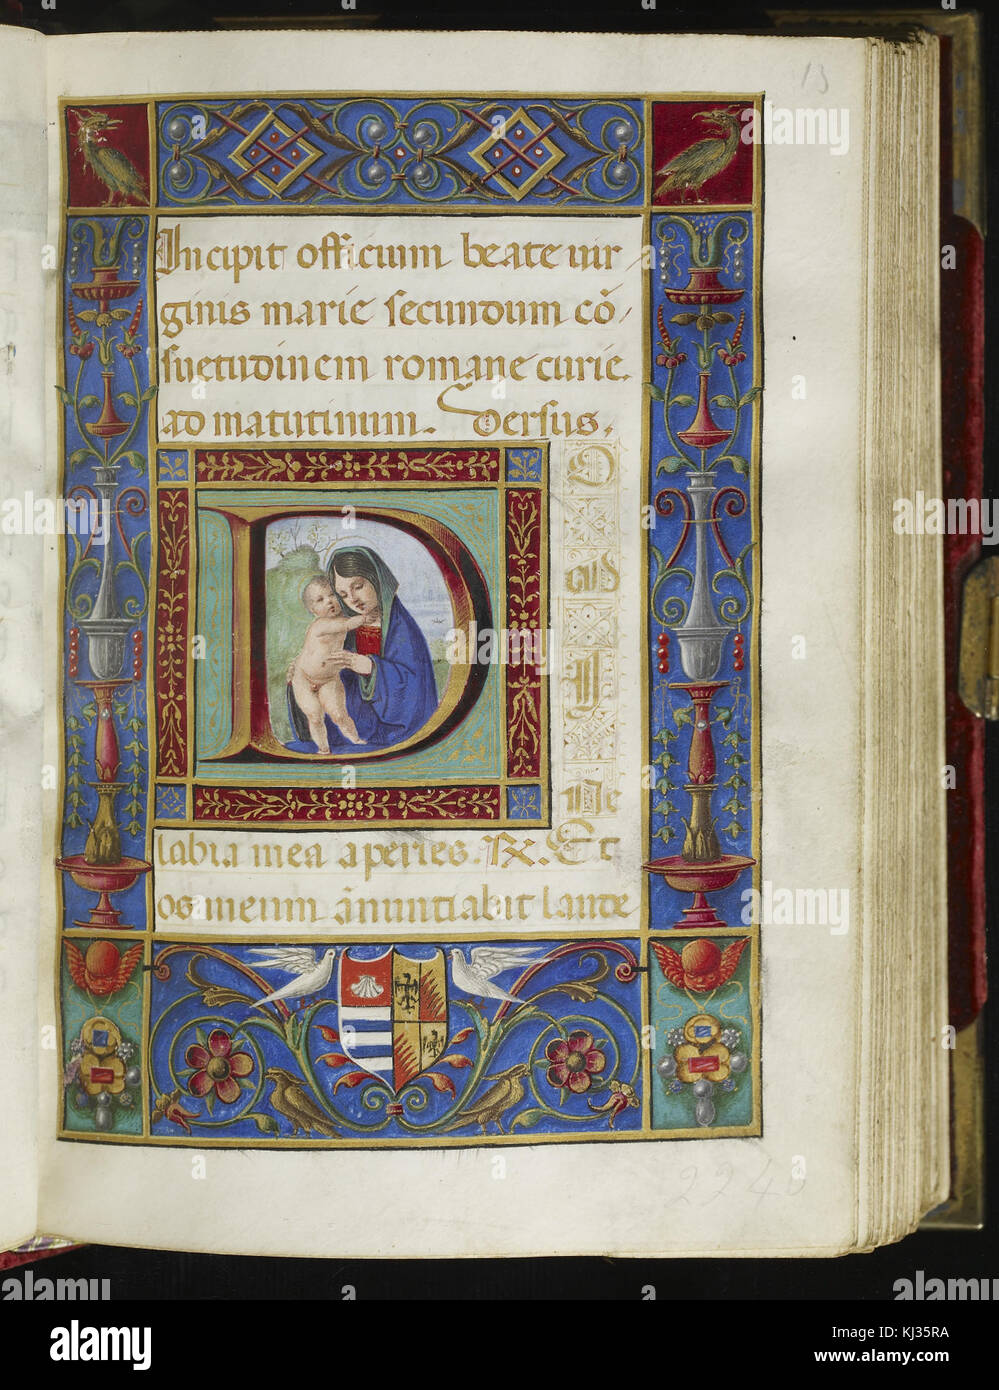 13
Incipit officium beate uir/
ginis marie secundum cō/
suetudinem romane curie.
ad matutinum. Versus.
D
O
ad
I
Ne
labia mea aperies. R. Et
os meum ānuntiabit laude
2240
a alamy stock photo
KJ35RA
www.alamy.com